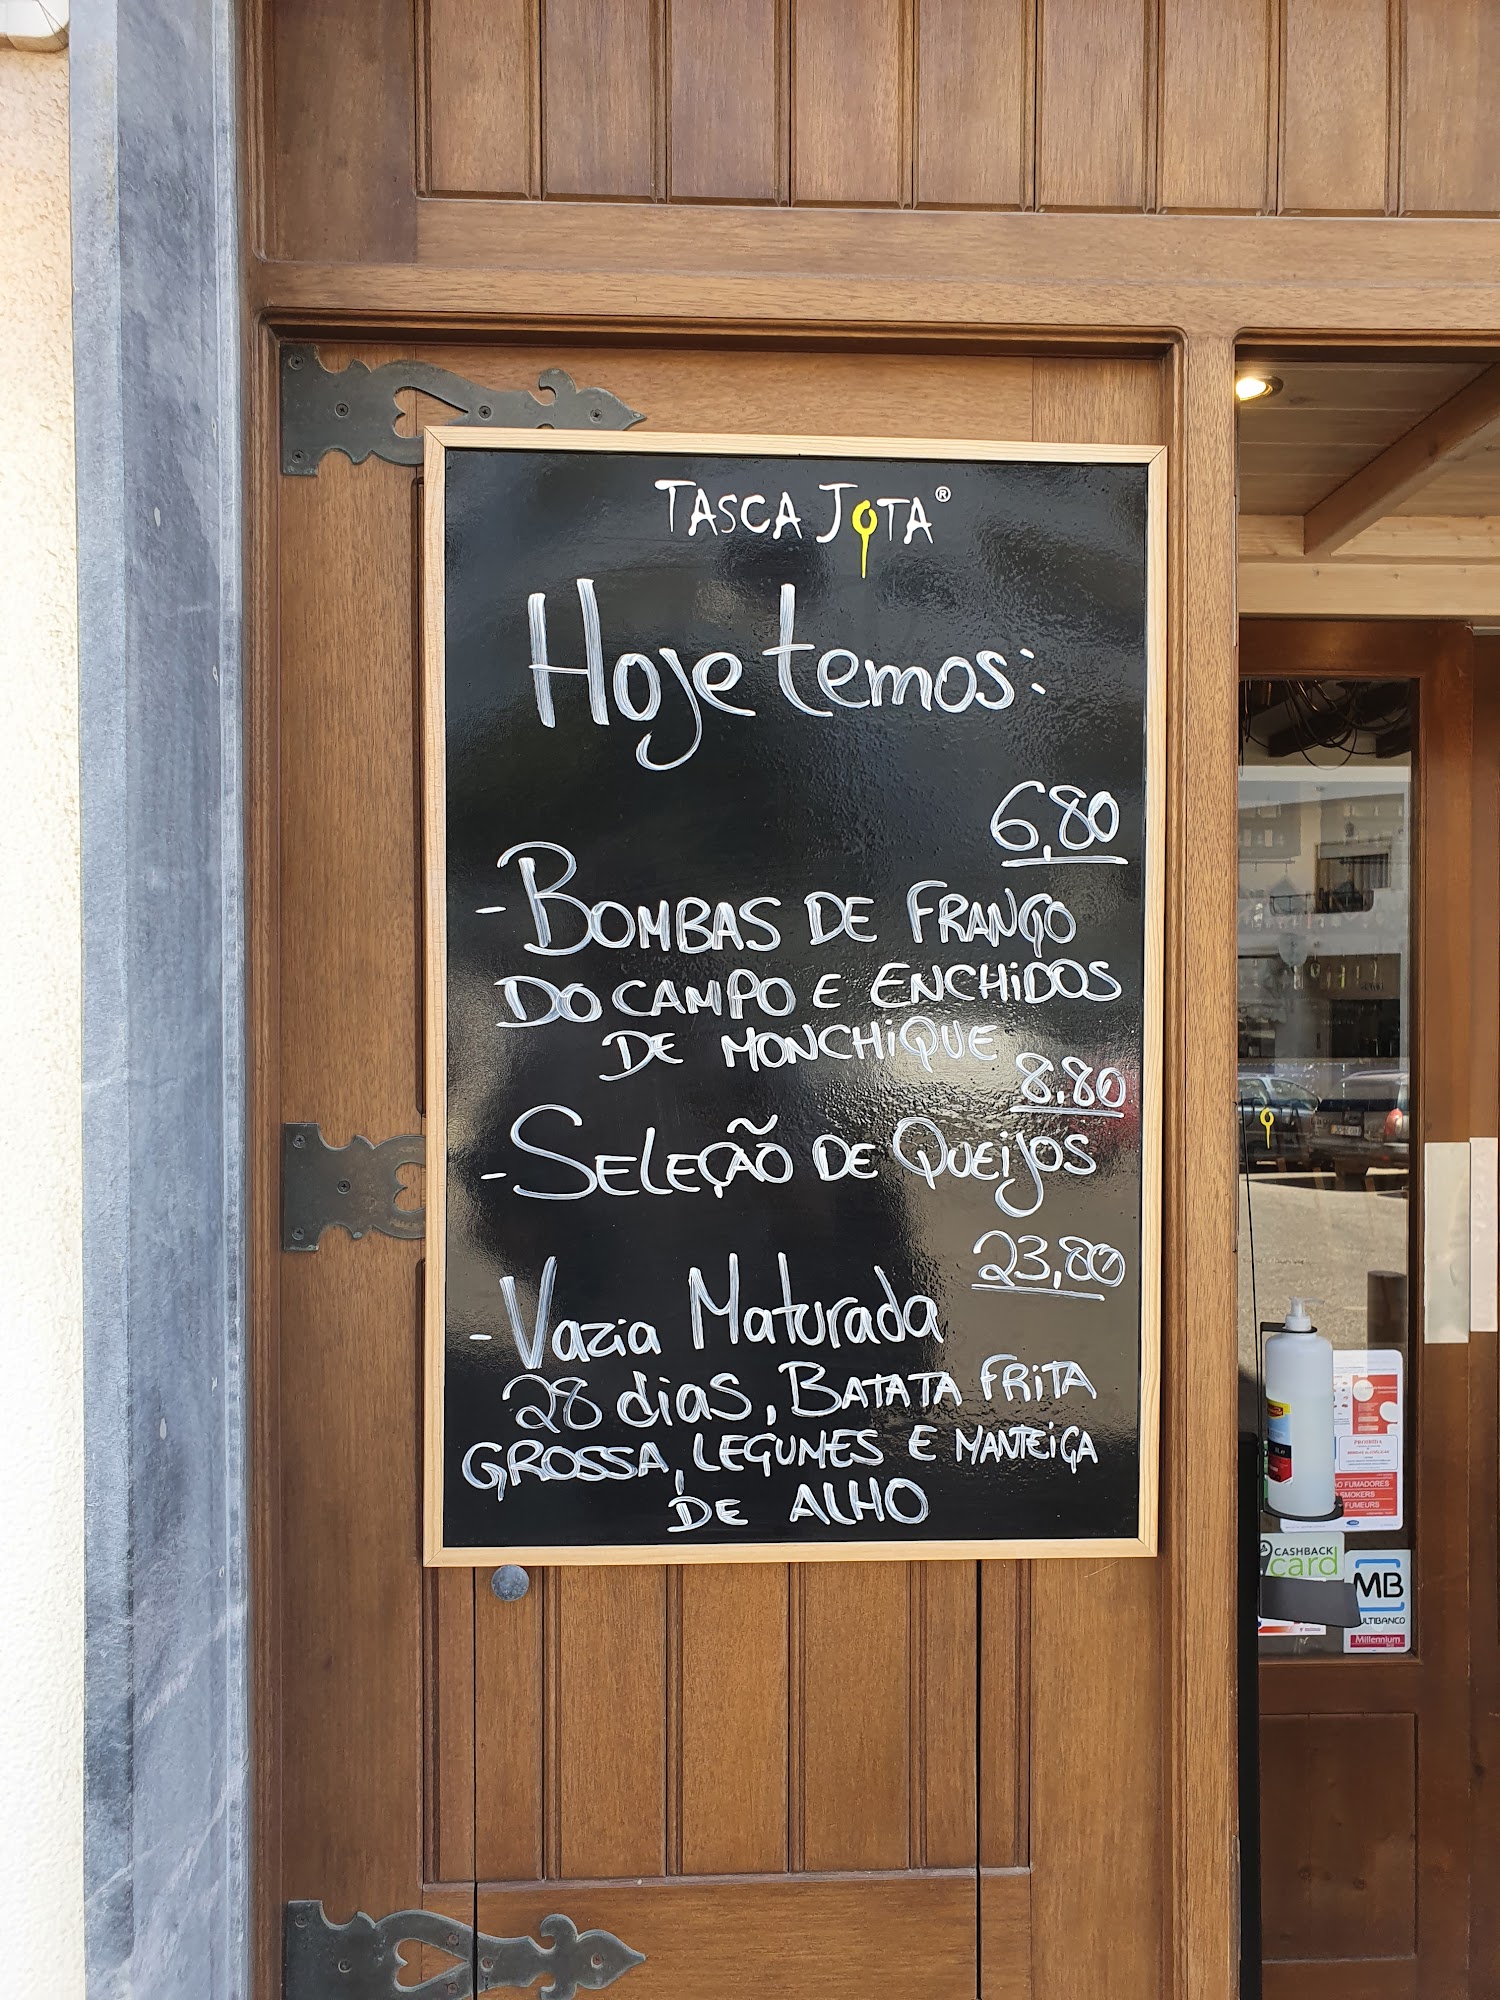 TASCA JOTA®
Hoje temos:
6,80
- BOMBAS DE FRANGO
DO CAMPO E ENCHIDOS
DE MONCHIQUE
8.80
- SELEÇÃO DE QUEIJOS
23,80
- Vazia Maturada
28 dias, BATATA FRITA
GROSSA, LEGUMES E MANTEIGA
DE ALHO
PROIBIDA
ÃO FUMADORES
SMOKERS
FUMEURS
CASHBACK
card
MB
ULTIBANCO
Millennium